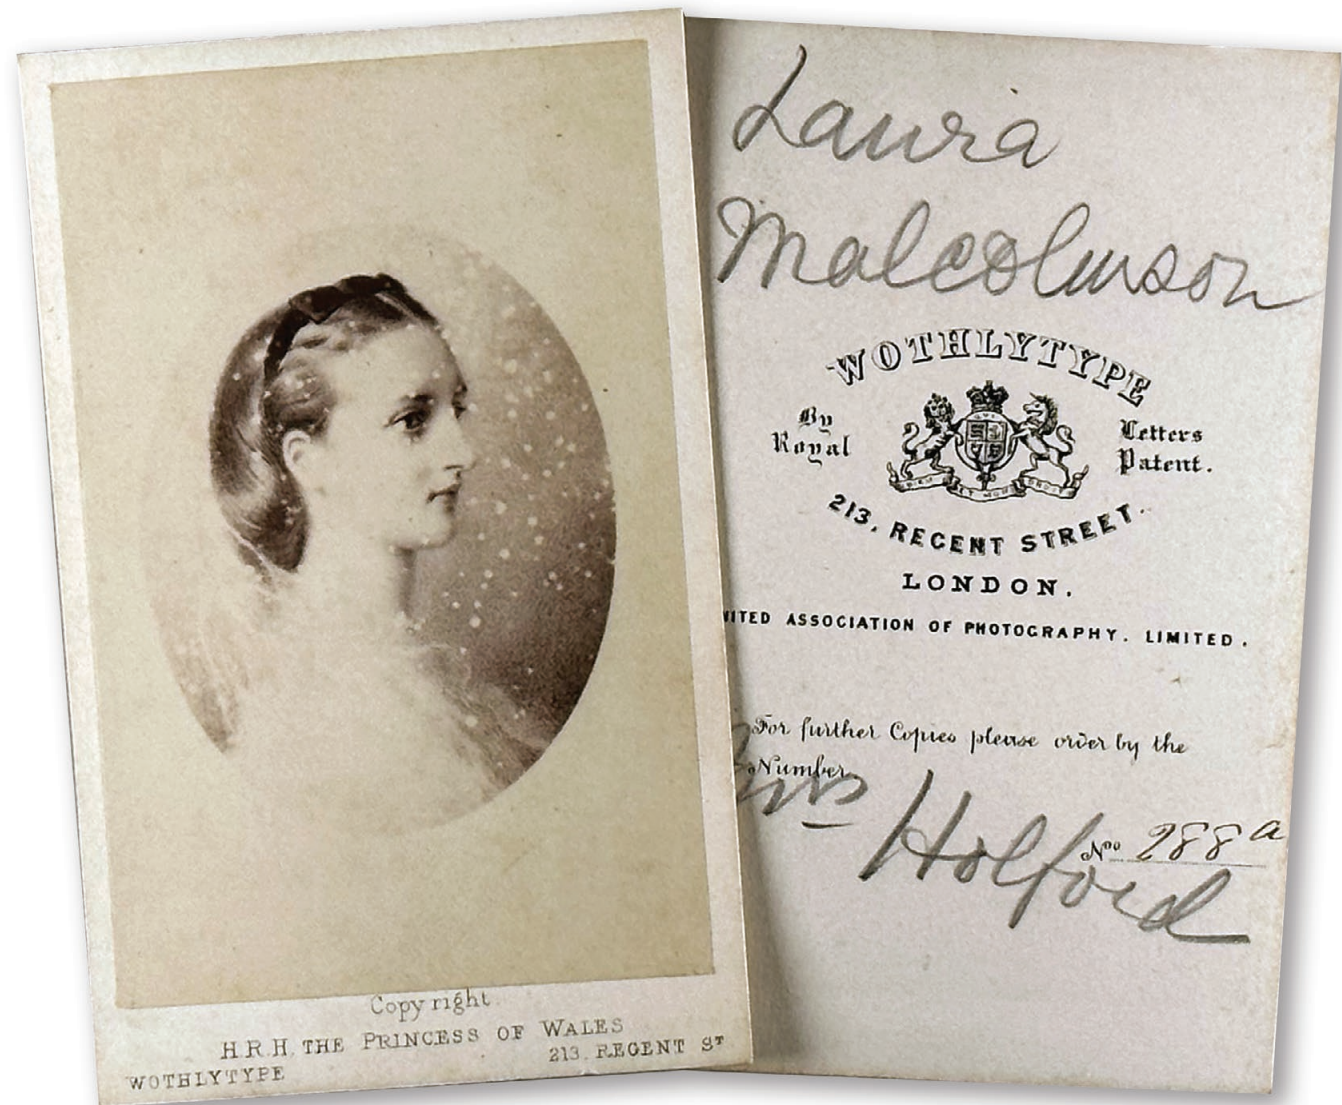 Copyright
H.R.H. THE PRINCESS OF WALES
213. REGENT ST
WOTHLYTYPE
Laura
Malcolmson
WOTHLYTYPE
By Royal
Letters Patent.
213, REGENT STREET.
LONDON.
ITED ASSOCIATION OF PHOTOGRAPHY. LIMITED.
For further Copies please order by the
Number
Mrs Holford
Nº 288a